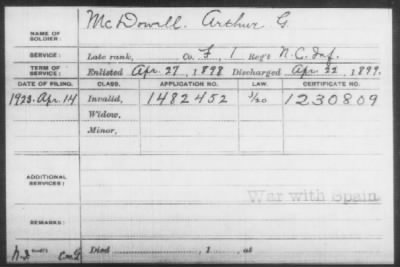 NAME OF SOLDIER: McDowell. Arthur G.
SERVICE: Late rank, Co. F, 1 Reg't N.C. Inf.
TERM OF SERVICE: Enlisted Apr. 27, 1898 Discharged Apr. 22, 1899.
DATE OF FILING. CLASS. APPLICATION NO. LAW. CERTIFICATE NO.
1923. Apr. 14 Invalid, 1482452 1230809
Widow,
Minor,
ADDITIONAL SERVICES:
War with Spain
REMARKS:
Died , 1 , at